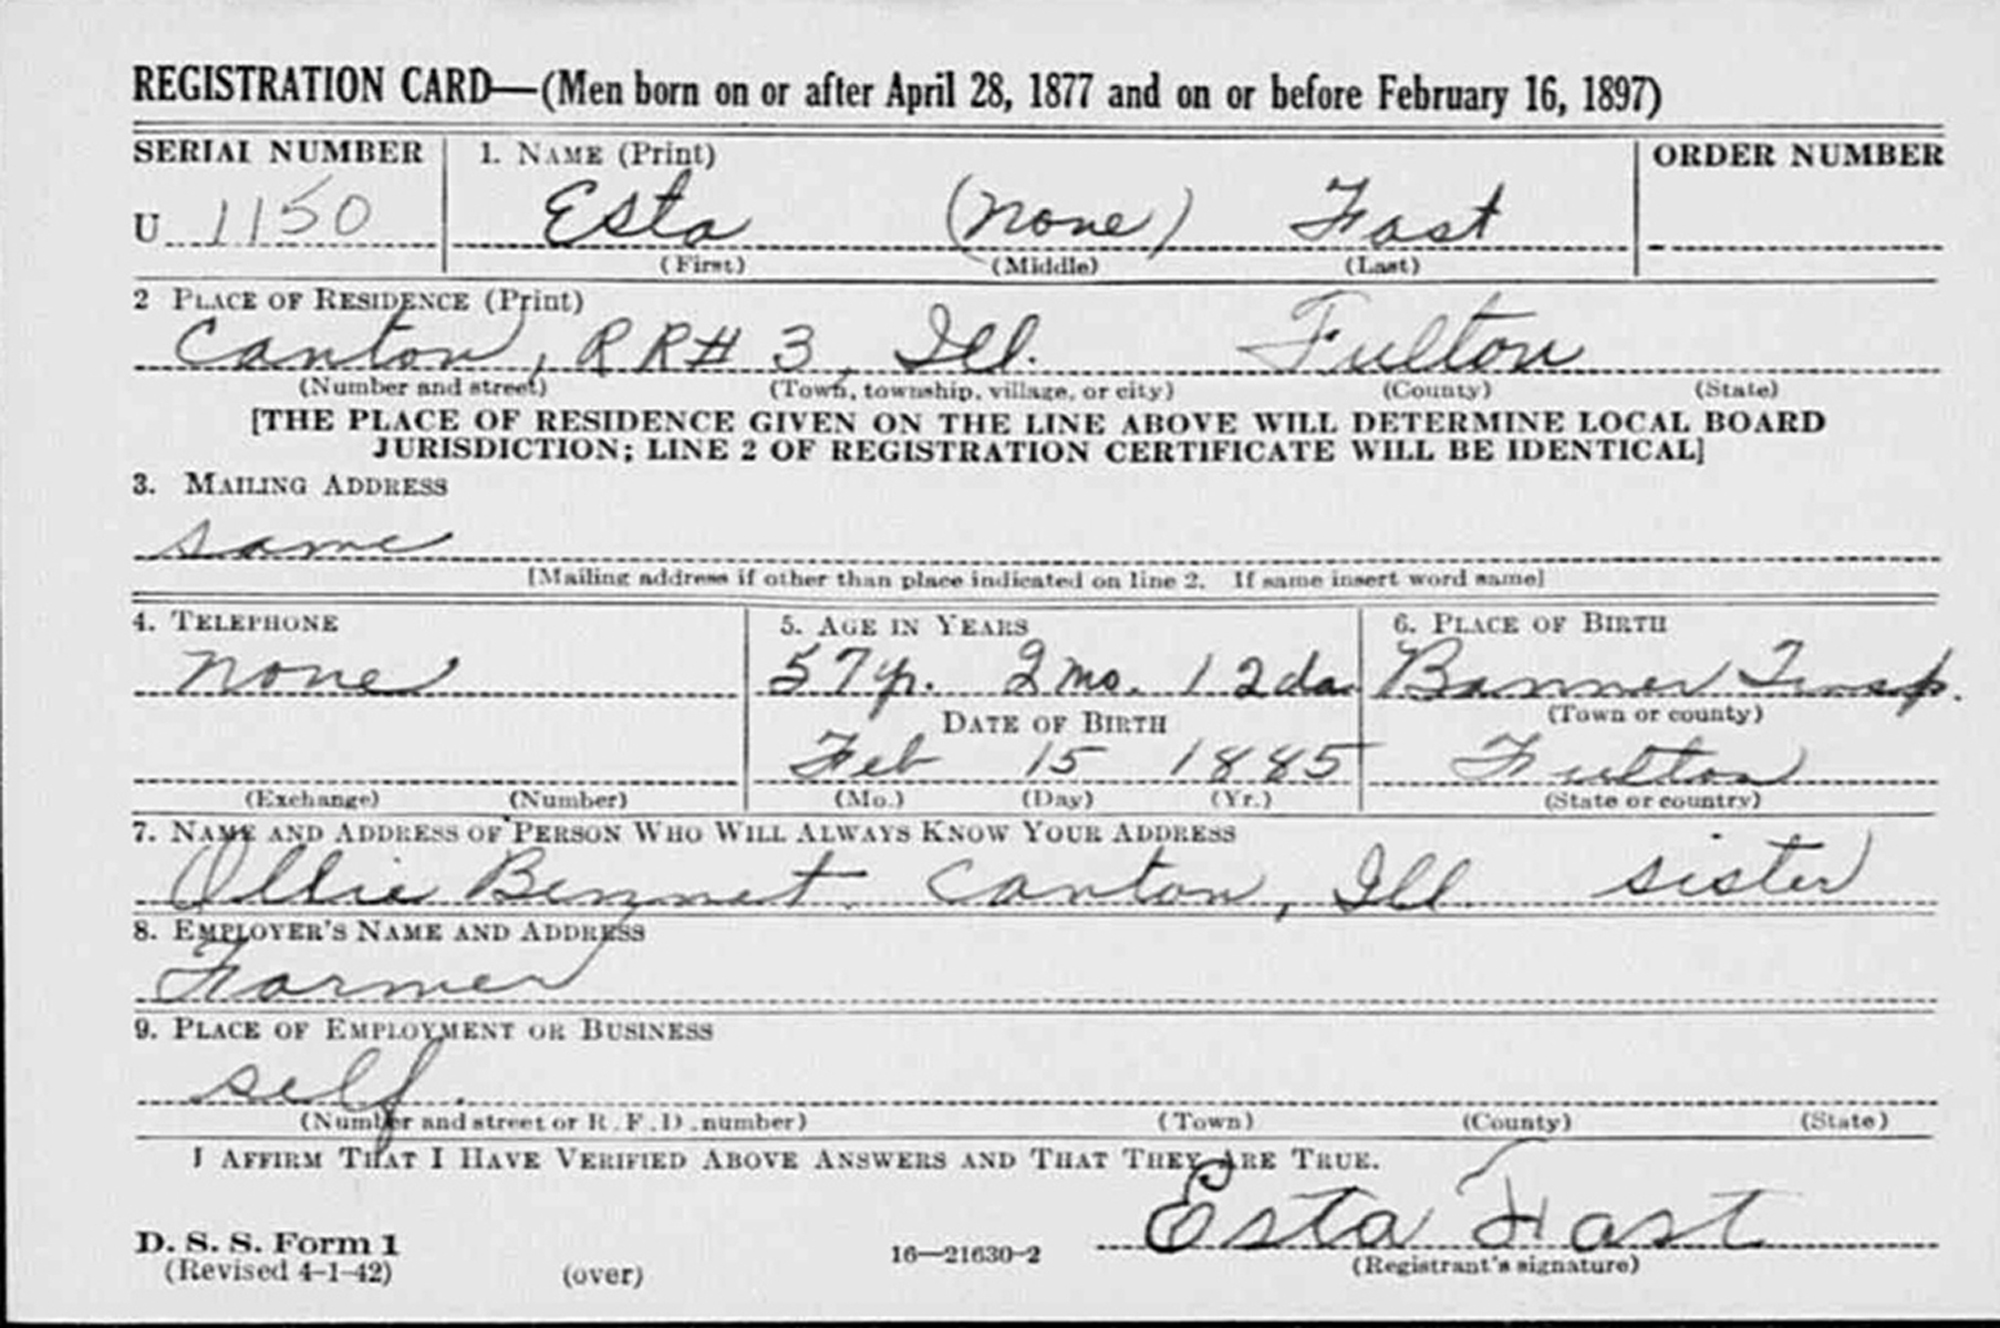 REGISTRATION CARD—(Men born on or after April 28, 1877 and on or before February 16, 1897)
SERIAL NUMBER 1. NAME (Print) ORDER NUMBER
U 1150 Esta (none) Fast
(First) (Middle) (Last)
2 PLACE OF RESIDENCE (Print)
Canton, RR# 3, Ill. Fulton
(Number and street) (Town, township, village, or city) (County) (State)
[THE PLACE OF RESIDENCE GIVEN ON THE LINE ABOVE WILL DETERMINE LOCAL BOARD
JURISDICTION; LINE 2 OF REGISTRATION CERTIFICATE WILL BE IDENTICAL]
3. MAILING ADDRESS
same
[Mailing address if other than place indicated on line 2. If same insert word same]
4. TELEPHONE 5. AGE IN YEARS 6. PLACE OF BIRTH
none 57 yr. 2 mo. 12 da Banner Twsp.
DATE OF BIRTH (Town or county)
Feb 15 1885 Fulton
(Exchange) (Number) (Mo.) (Day) (Yr.) (State or country)
7. NAME AND ADDRESS OF PERSON WHO WILL ALWAYS KNOW YOUR ADDRESS
Ollie Bennet Canton, Ill. sister
8. EMPLOYER'S NAME AND ADDRESS
Farmer
9. PLACE OF EMPLOYMENT OR BUSINESS
self.
(Number and street or R. F. D. number) (Town) (County) (State)
I AFFIRM THAT I HAVE VERIFIED ABOVE ANSWERS AND THAT THEY ARE TRUE.
Esta Fast
D. S. S. Form 1 (Registrant's signature)
(Revised 4-1-42) (over) 16—21630-2